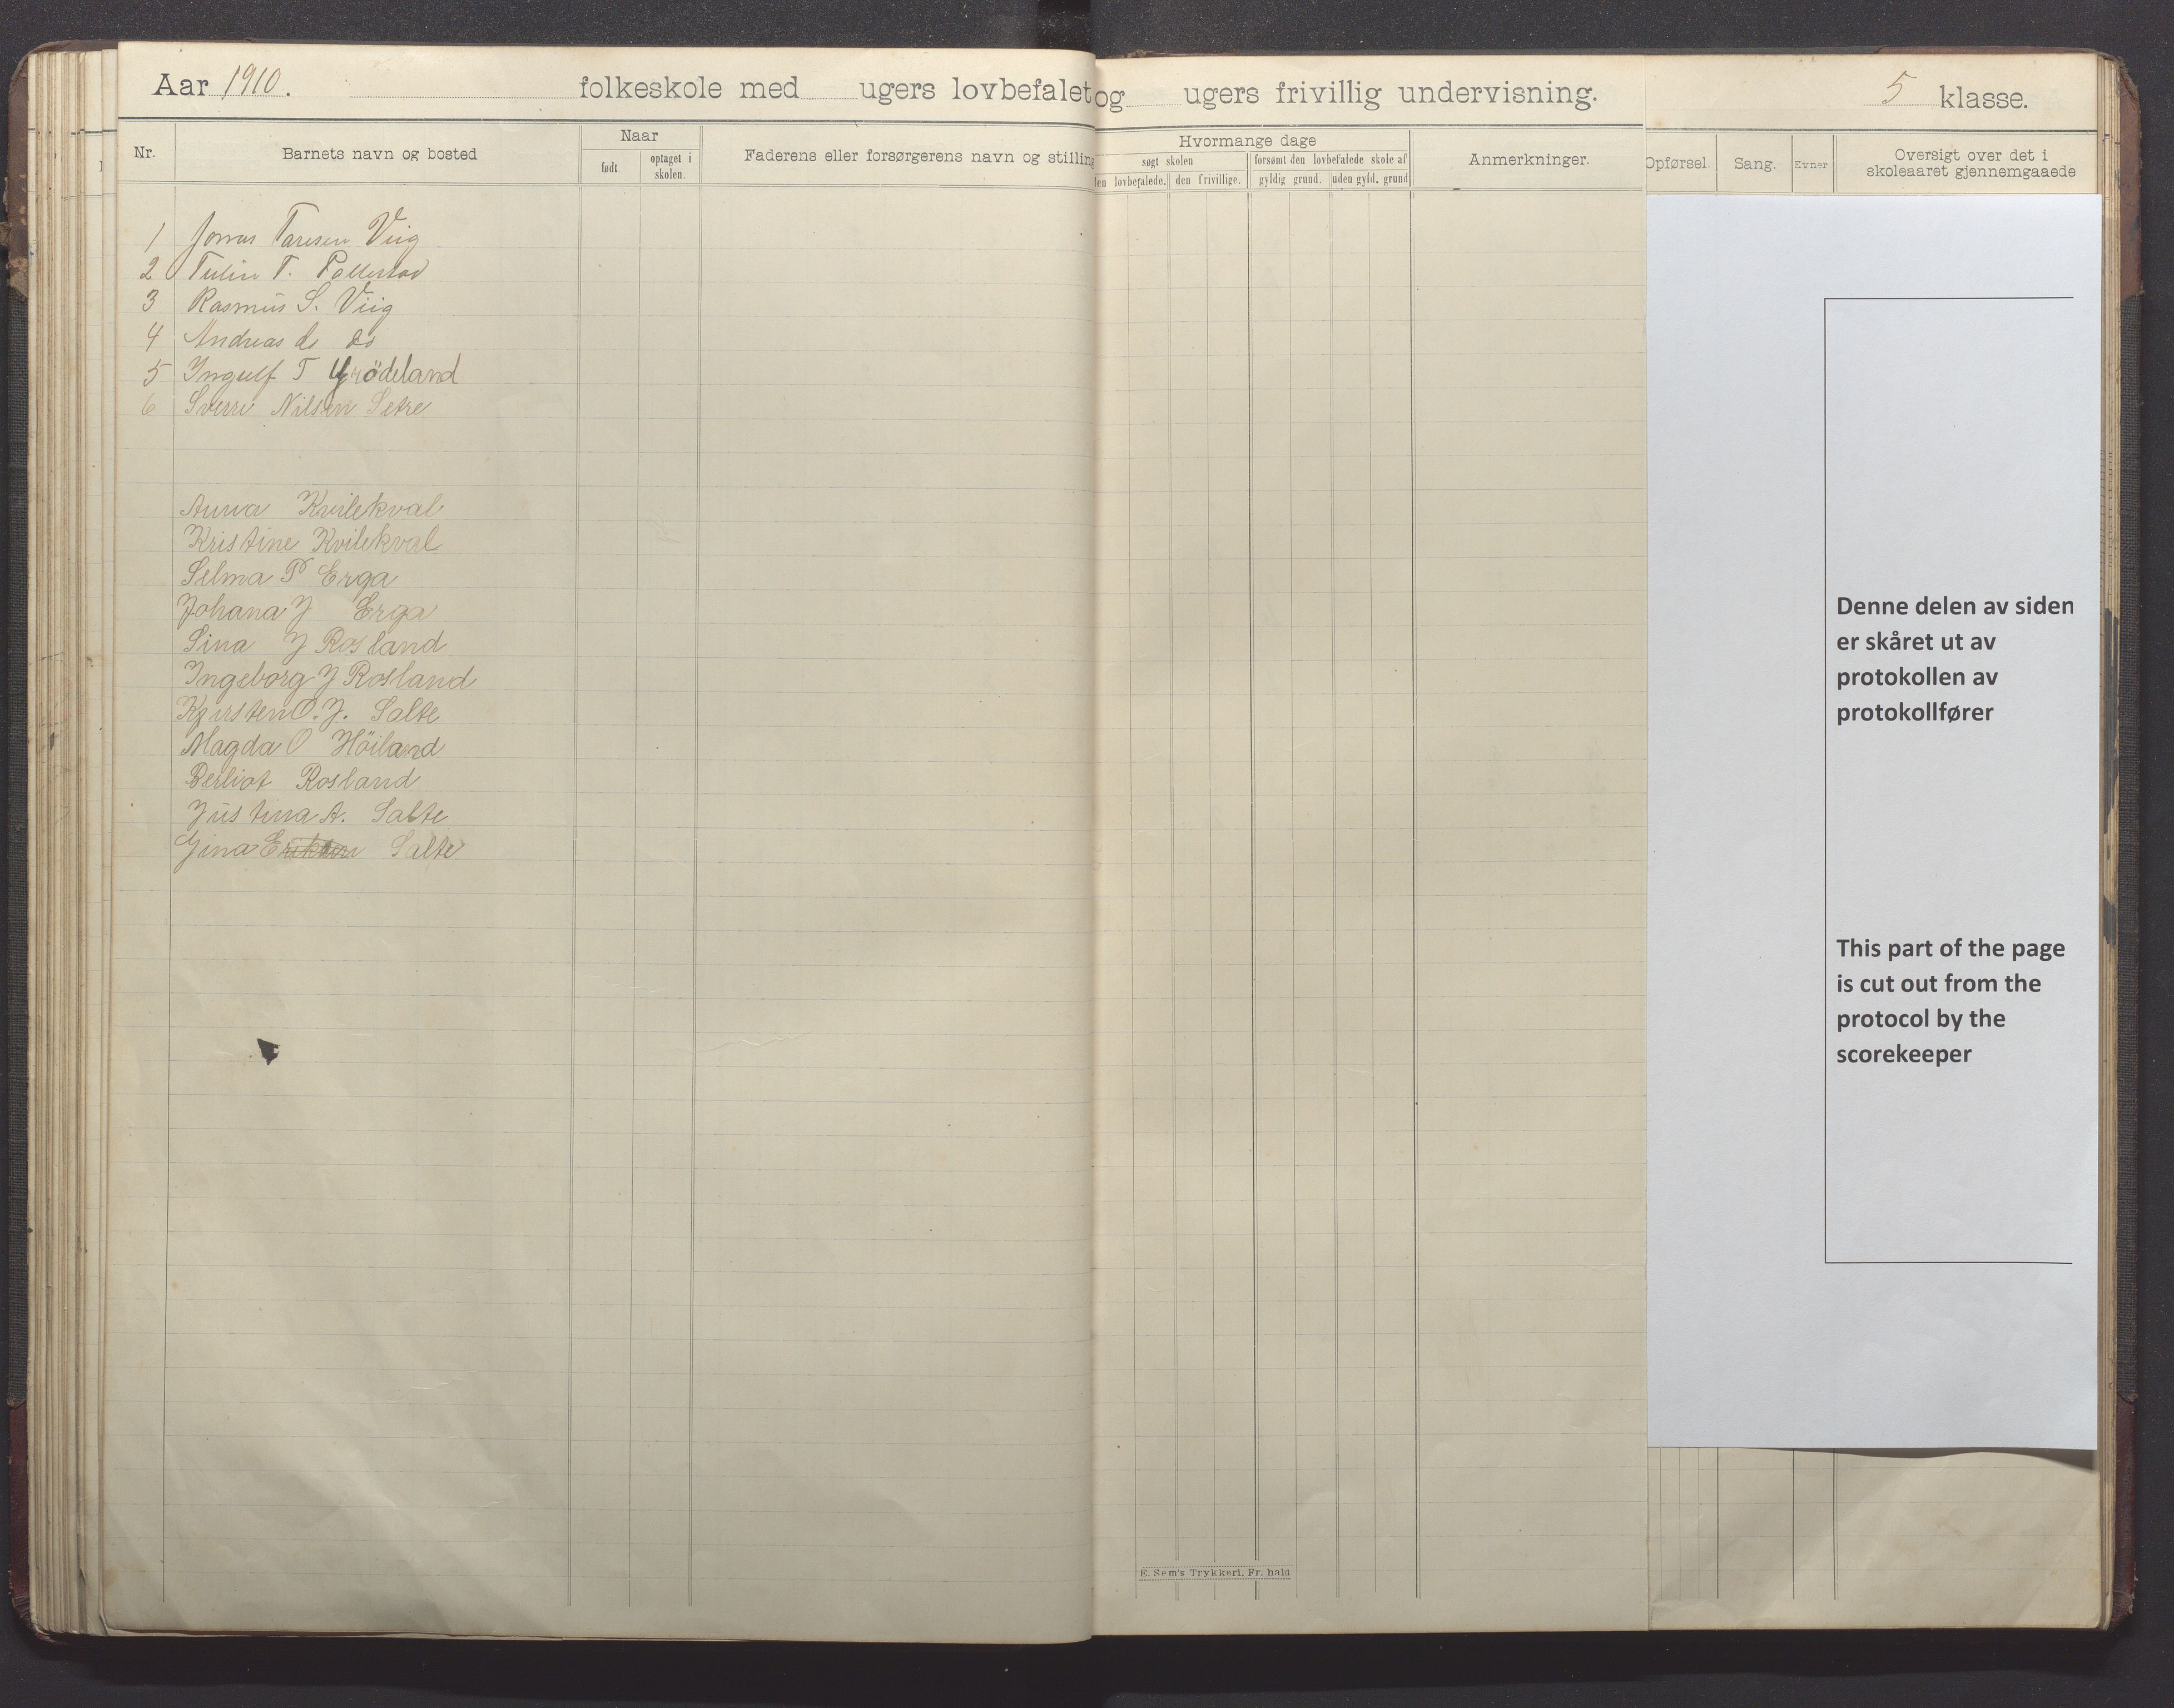 Aar 1910. folkeskole med ugers lovbefalet og ugers frivillig undervisning. 5 klasse.
Nr. Barnets navn og bosted Naar født optaget i skolen. Faderens eller forsørgerens navn og stilling
Hvormange dage søgt skolen den lovbefalede. den frivillige. forsømt den lovbefalede skole af gyldig grund. uden gyld. grund Anmerkninger.
Opførsel. Sang. Evner Oversigt over det i skoleaaret gjennemgaaede
1 Jonas Taresen Viig
2 T. Pollestad
3 Rasmus S. Viig
4 Andreas do do
5 Ingulf T Grödeland
6 Sverre Nilsen Setre
Anna Kvilekval
Kristine Kvilekval
Selma P Erga
Johana J Erga
Sina J Rosland
Ingeborg J Rosland
Kjirsten O. J. Salte
Magda O Höiland
Berliot Rosland
Justina A. Salte
Gina Eriksen Salte
E. Sem's Trykkeri, Fr. hald
Denne delen av siden
er skåret ut av
protokollen av
protokollfører
This part of the page
is cut out from the
protocol by the
scorekeeper